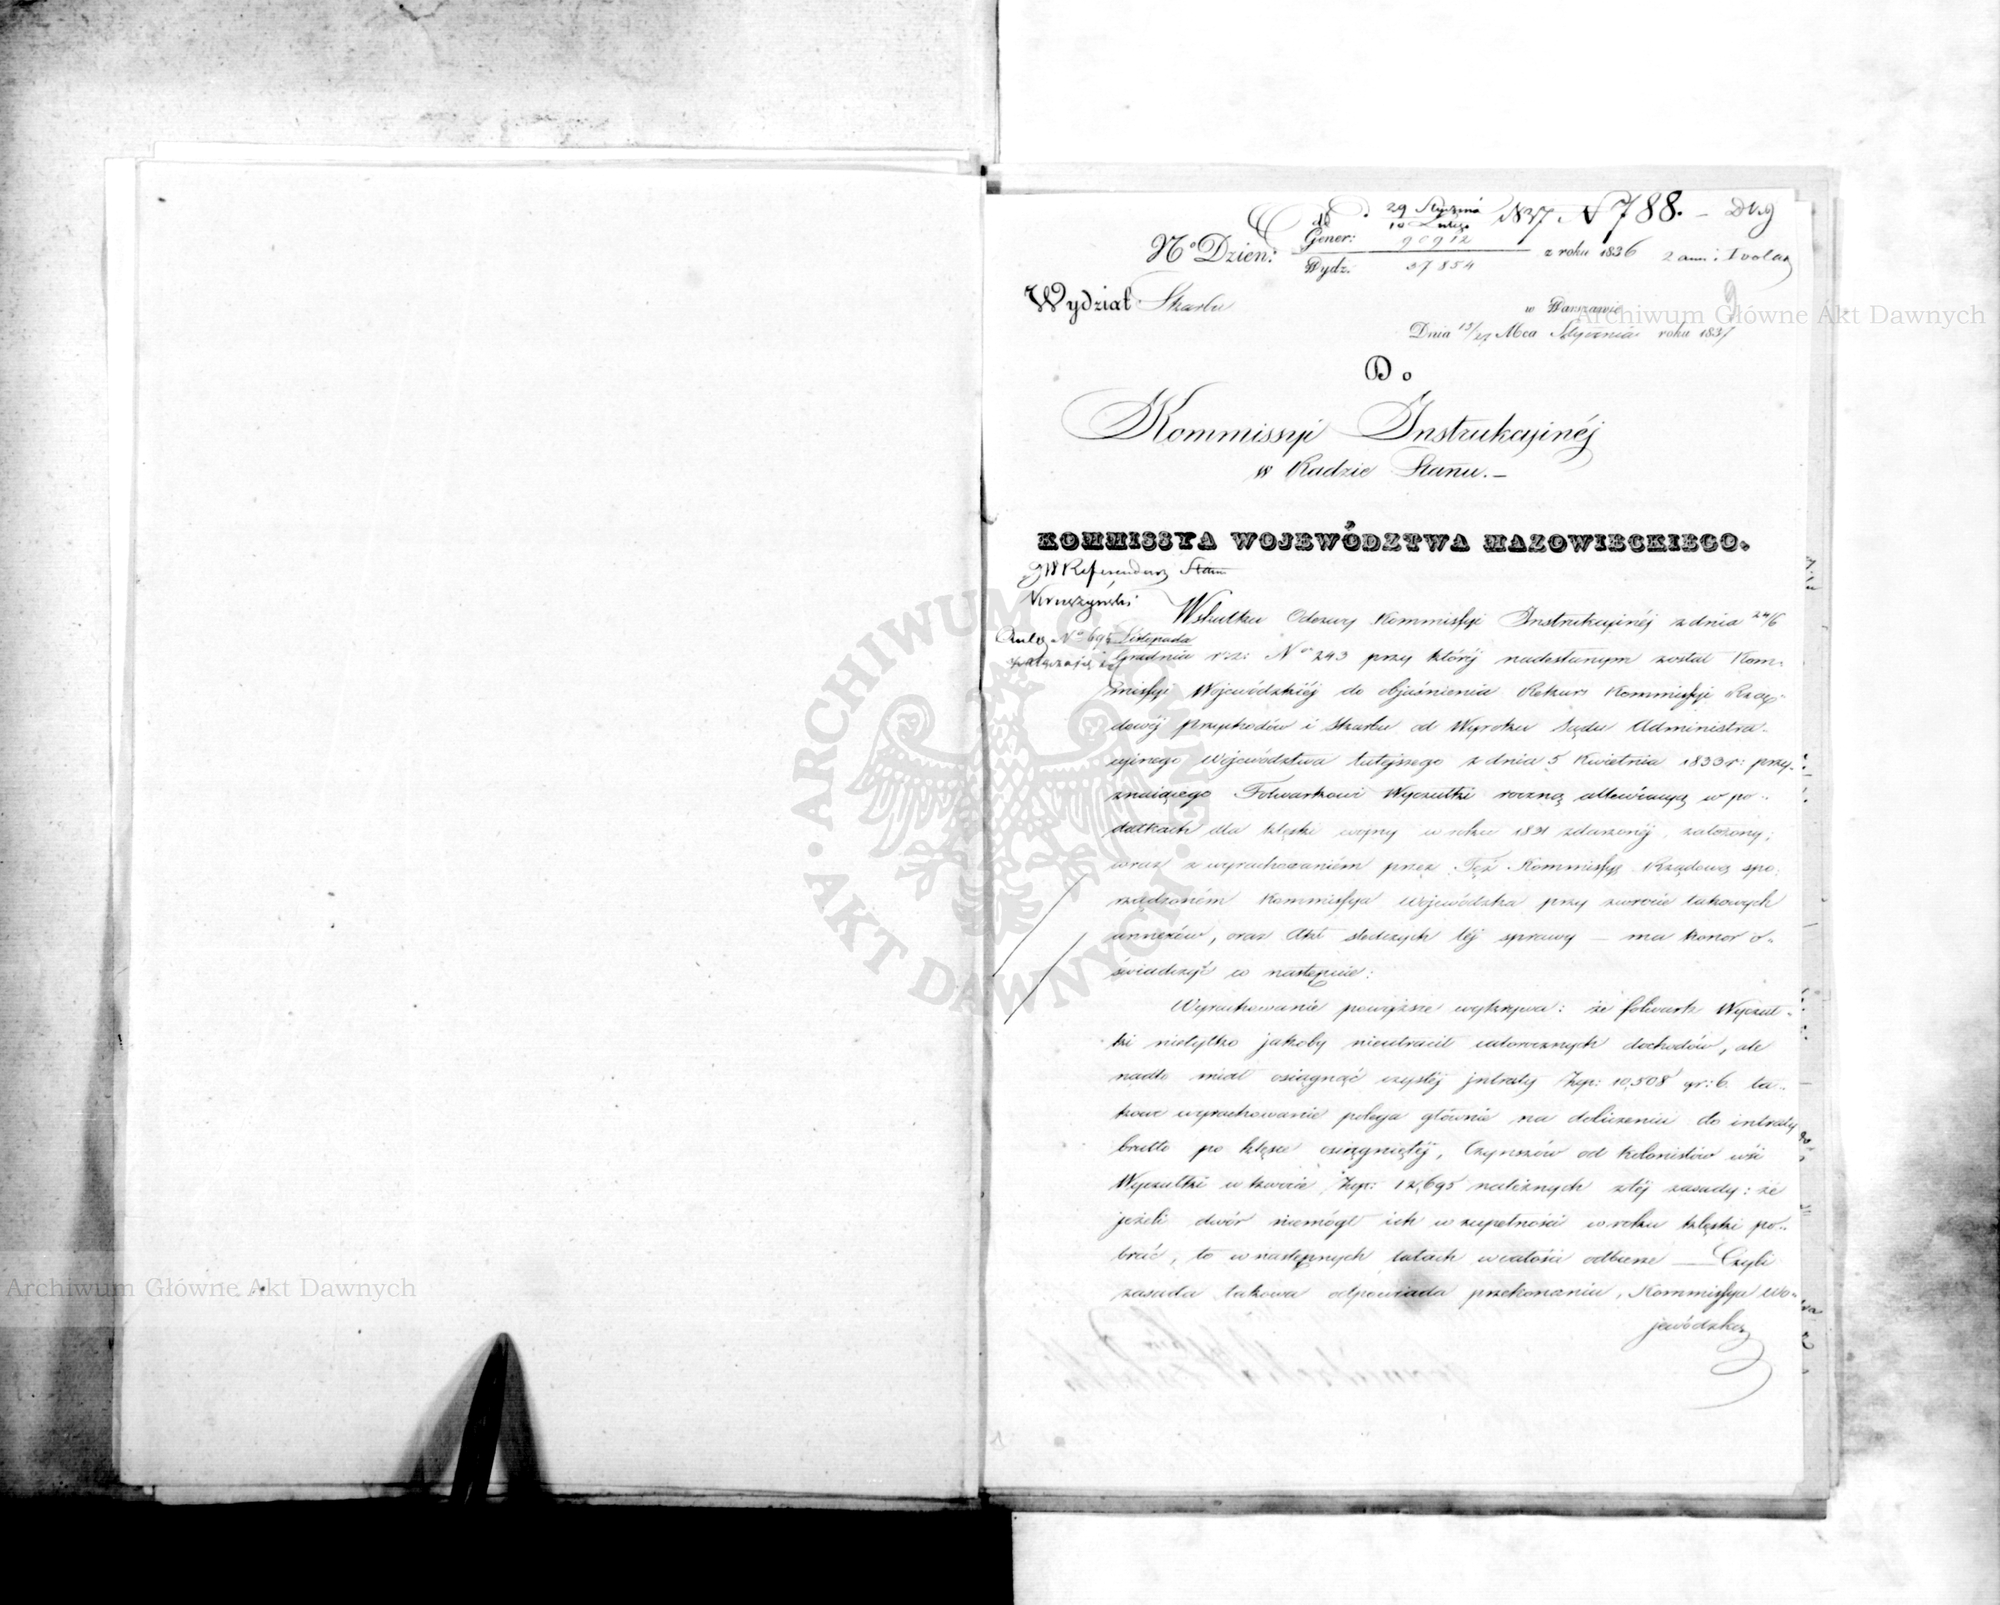 d. 29 Stycznia 1837 N 788.
10 Lutego
N° Dzien: Gener: 90912 z roku 1836
Wydz. 37854
Wydział Skarbu
w Warszawie
Dnia 15/27 Mca Stycznia roku 1837
Do
Kommissyi Instrukcyinéj
w Radzie Stanu. —
KOMMISSYA WOJEWÓDZTWA MAZOWIECKIEGO.
JW Referendarz Stanu
Wskutku Odezwy Kommissyi Instrukcyinéj z dnia 24/6
Listopada
Grudnia r. z: N° 243 przy któréj nadesłanym został Kom-
missyi Wojewódzkiéj do objaśnienia Rekurs Kommissyi Rzą-
dowéj Przychodów i Skarbu od Wyroku Sądu Administra-
cyinego Województwa tutejszego z dnia 5 Kwietnia 1833 r: przy-
znaiącego Folwarkowi Wyczułki roczną allewiacyą w po-
datkach dla klęski wojny w roku 1831 zdarzonéj, założony;
wraz z wyrachowaniem przez Też Kommissyą Rządową spo-
rządzoném Kommissya Wojewódzka przy zwrocie takowych
annexów, oraz Akt śledczych téj sprawy — ma honor o-
świadczyć co następuie:
Wyrachowanie powyższe wykrywa: że folwark Wyczuł-
ki nietylko jakoby nieutracił całorocznych dochodów, ale
nadto miał osiągnąć czystéj intraty Złp: 10,508 gr: 6. ta-
kowe wyrachowanie polega głównie na doliczeniu do intraty
brutto po klęsce osiągniętéj, Czynszów od Kolonistów wsi
Wyczułki w kwocie Złp: 12,695 należnych z téj zasady: że
jeżeli dwór niemógł ich w zupełności w roku klęski po-
brać, to w następnych latach w całości odbierze — Czyli
zasada takowa odpowiada przekonaniu, Kommissya Wo-
jewódzka
Archiwum Główne Akt Dawnych
Archiwum Główne Akt Dawnych
ARCHIWUM GŁÓWNE AKT DAWNYCH